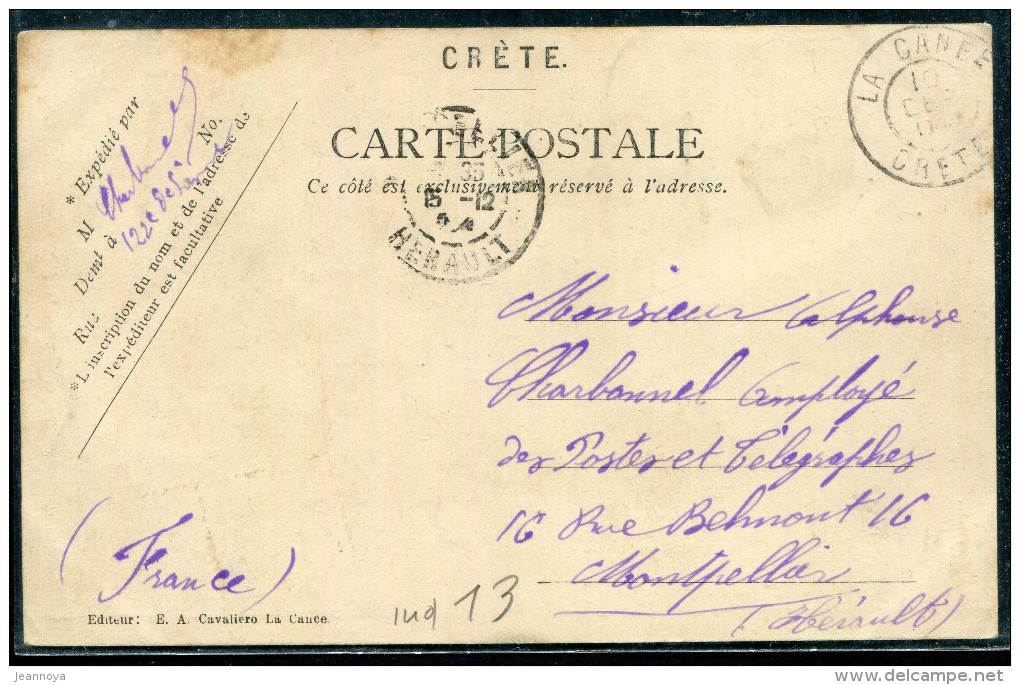 CRÈTE.
LA CANÉE
CRETE
CARTE POSTALE
Ce côté est exclusivement réservé à l'adresse.
15 -12
HÉRAULT
* Expédié par
M
Demt à
Rue
No.
*L'inscription du nom et de l'adresse de
l'expéditeur est facultative
Monsieur Alphonse
Charbonnel Employé
des Postes et Télégraphes
16 Rue Belmont 16
Montpellier
(Hérault)
(France)
Editeur: E. A. Cavaliero La Canée.
ind 13
jeannoya
©delcampe.net